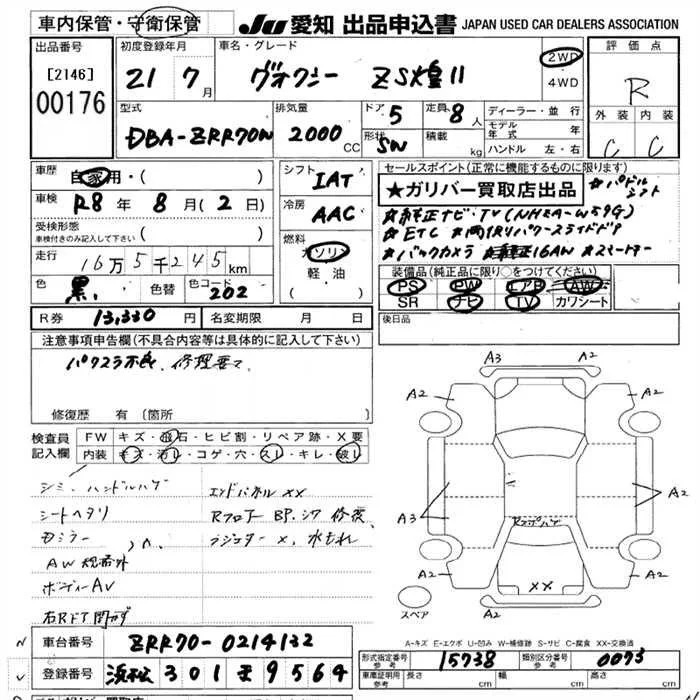 車内保管・守衛保管 JU 愛知 出品申込書 JAPAN USED CAR DEALERS ASSOCIATION
出品番号 初度登録年月 車名・グレード 2WD 評価点
[2146] 21 7月 ヴォクシー ZS煌II 4WD R
00176 型式 排気量 ドア 5 定員 8人 ディーラー・並行 外装 内装
DBA-ZRR70N 2000CC 形状 SW 積載 kg モデル年式 年 C C
ハンドル 左・右
車歴 自家用・( ) シフト IAT セールスポイント(正常に機能するものに限ります)
車検 R8年 8月(2日) 冷房 AAC ★ガリバー買取店出品 ★パドルシフト
受検形態 ★純正ナビ・TV(NHZA-W59G)
車検付きのみ記入して下さい( ) 燃料 ★ETC ★両側パワースライドドア
走行 16万5千245km ガソリン ★バックカメラ ★純正16AW ★スマートキー
軽・油 装備品(純正品に限り○をつけてください)
色 黒 色替 色コード 202 ( ) PS PW エアB AW
SR ナビ TV カワシート
R券 13,330円 名変期限 月 日 後日品
注意事項申告欄(不具合内容等は具体的に記入して下さい)
パワスラ不良、修理要す
修復歴 有(箇所
検査員記入欄 FW キズ・飛石・ヒビ割・リペア跡・X要
内装 キズ・汚レ・コゲ・穴・スレ・キレ・破レ
シミ・ハンドルハゲ エンドパネルXX
シートヘタリ Rフロアー BP.シワ 修復
ラジエター X、水もれ
AW規格外
ボディーAV
右Rドア開カず
A3 A2
A2 A2
A3 A2
A2 XX A2
スペア
A-キズ E-エクボ U-凹み W-補修跡 S-サビ C-腐食 XX-交換済
車台番号 ZRR70-0214132
型式指定番号 参考 15738 類別区分番号 参考 0073
登録番号 浜松 301 9564
車庫証明用 参考 長さ cm 幅 cm 高さ cm